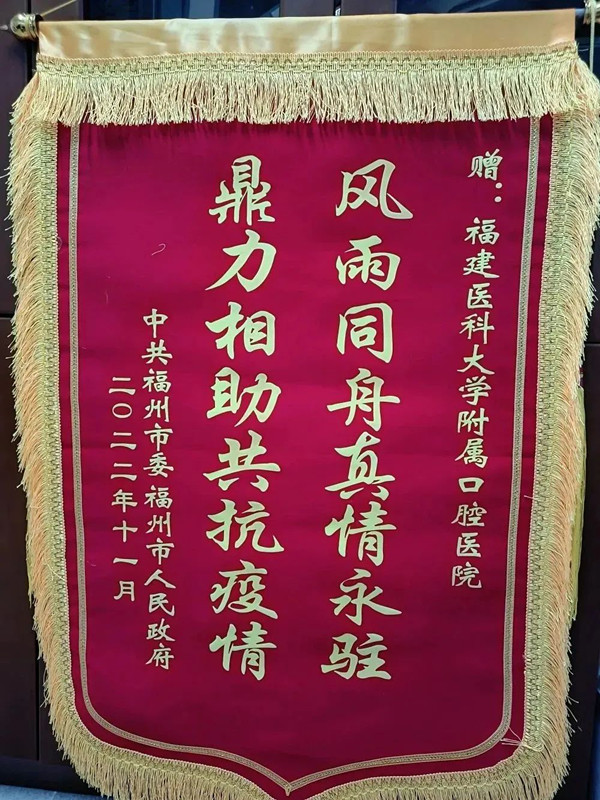 赠：福建医科大学附属口腔医院
风雨同舟真情永驻
鼎力相助共抗疫情
中共福州市委福州市人民政府
二〇二二年十一月